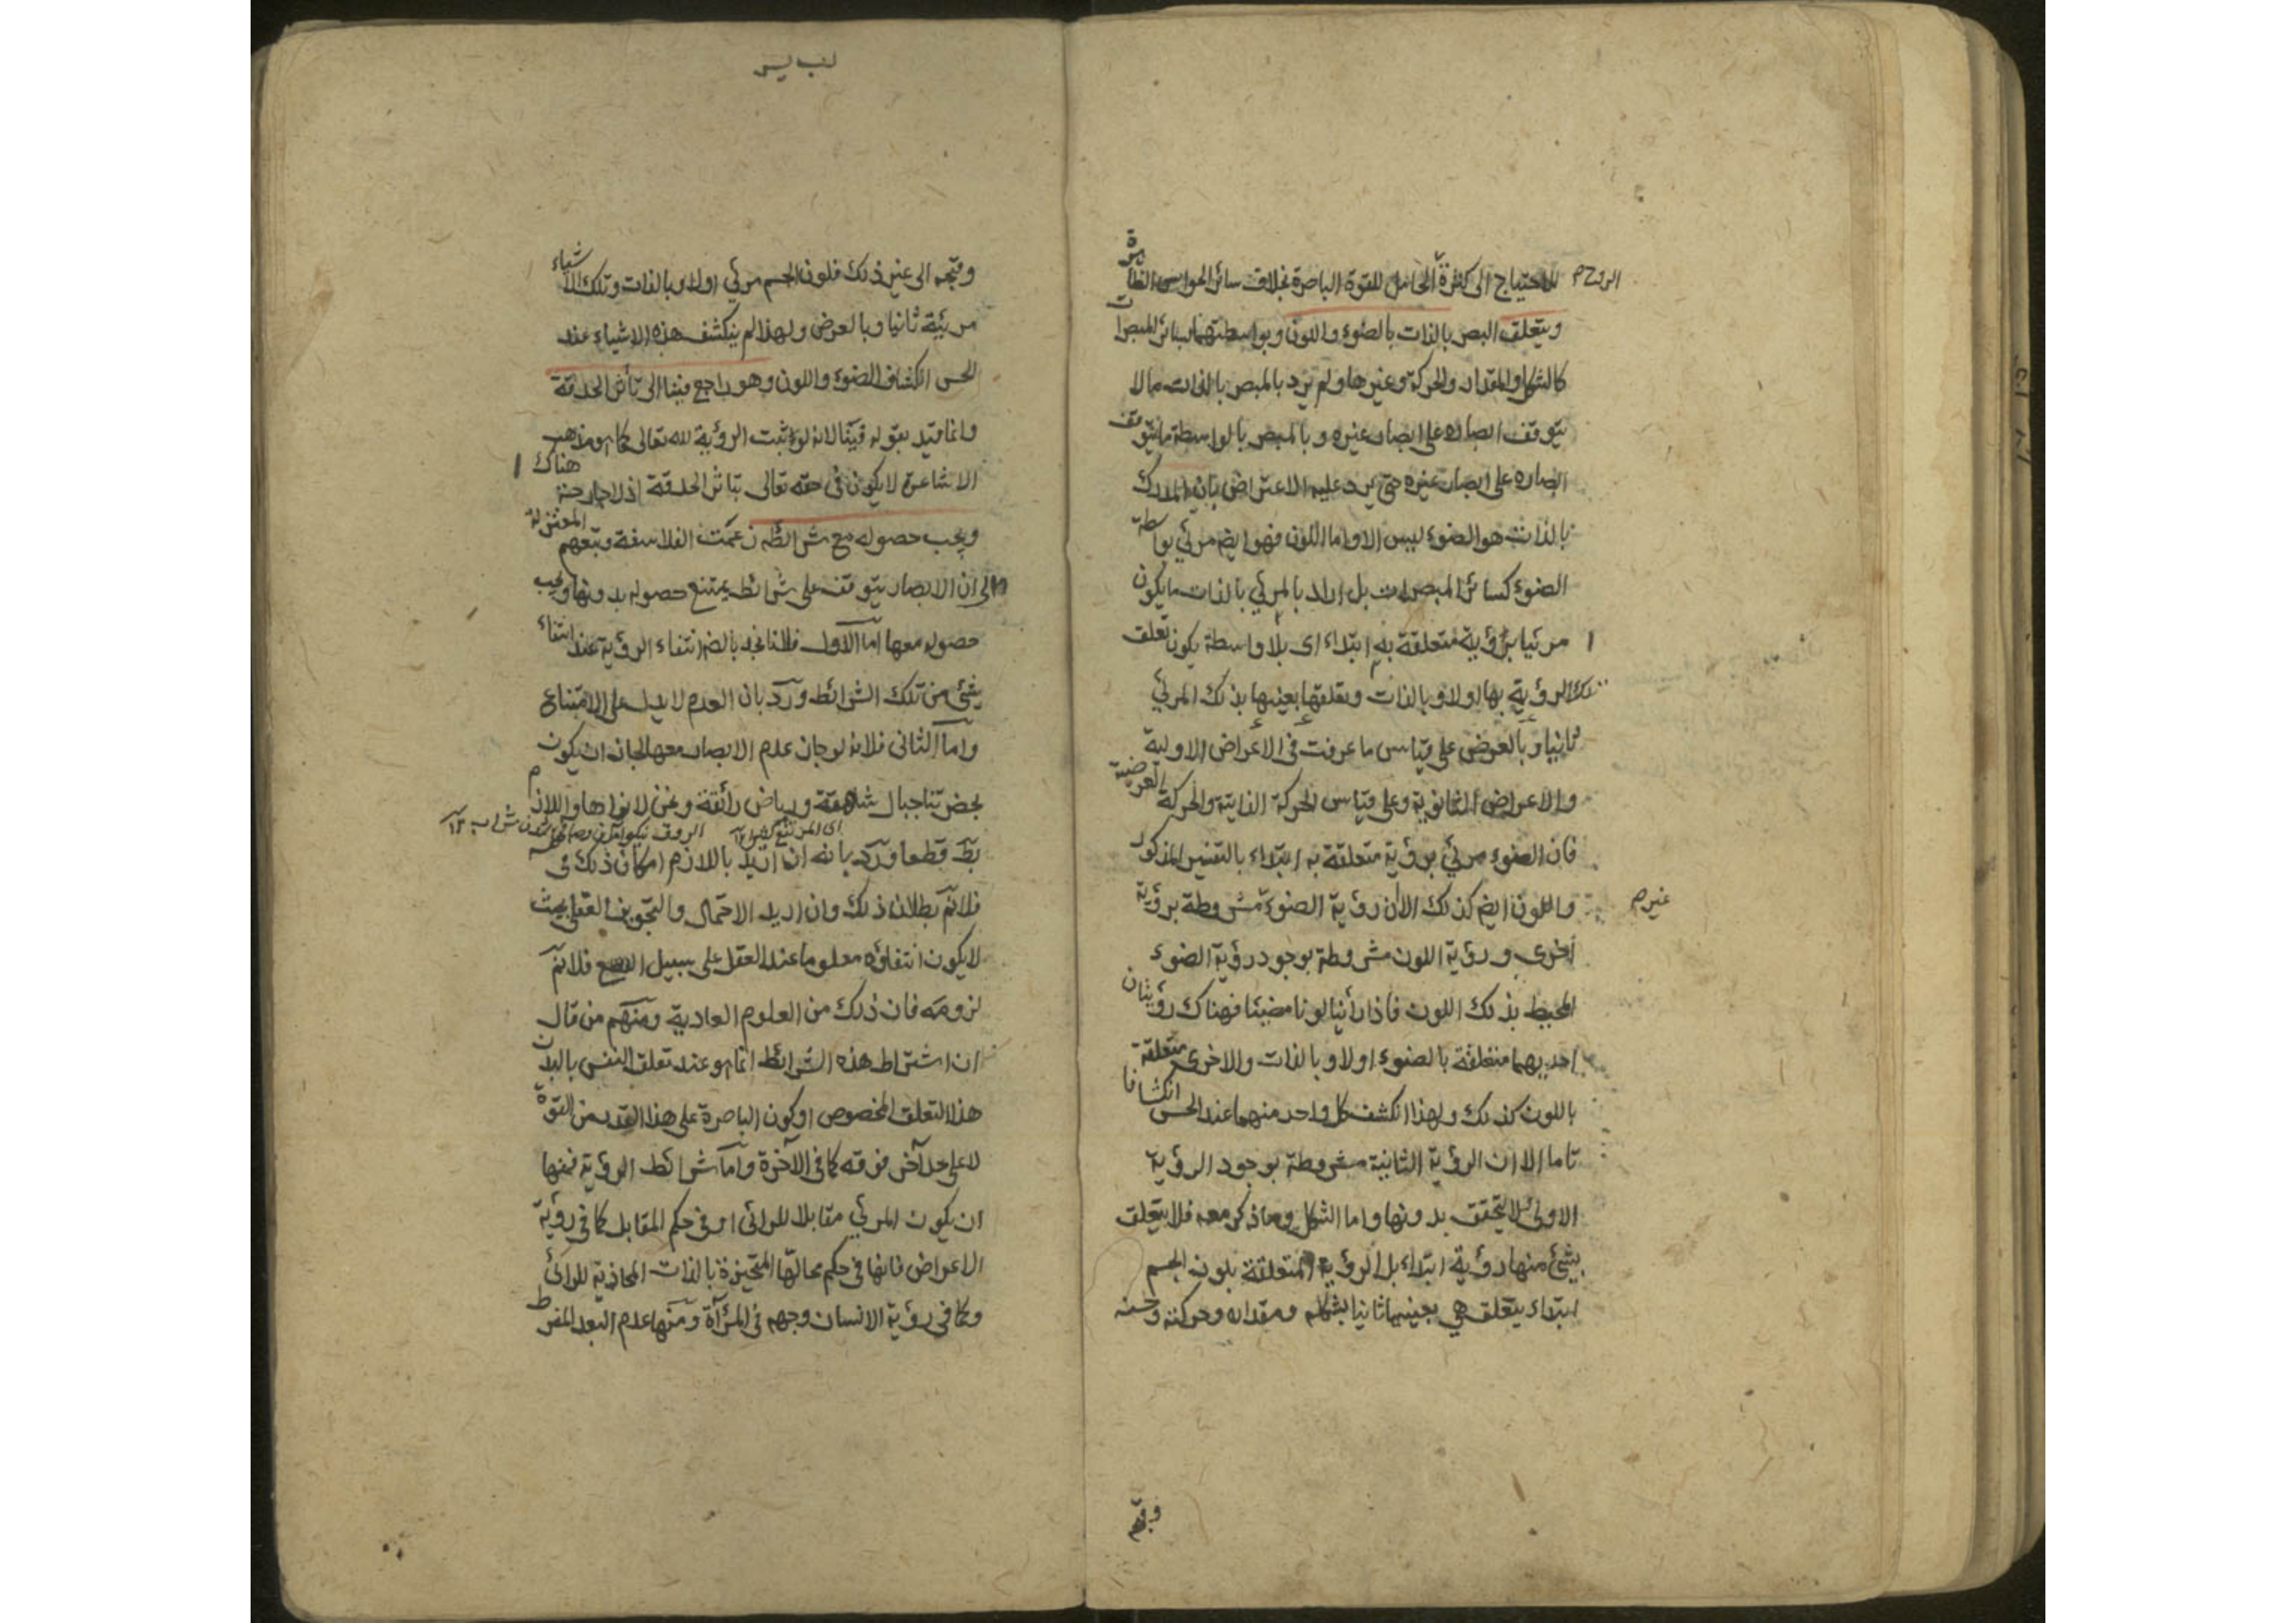 للاحتياج الى كثرة الحامل للقوة الباصرة بخلاف سائر الحواس الظاهرة
الروح م
ويتعلق البصر بالذات بالضوء واللون وبواسطتهما بسائر المبصرات
كالشكل والمقدار والحركة وغيرها ولم يرد بالمبصر بالذات ما لا
يتوقف ابصاره على ابصار غيره وبالمبصر بالواسطة ما يتوقف
ابصاره على ابصار غيره حتى يرد عليه الاعتراض بان المدرك
بالذات هو الضوء ليس الا واما اللون فهو ايضا مرئي بواسطة
الضوء كسائر المبصرات بل اراد بالمرئي بالذات ما يكون
مرئيا برؤية متعلقة به ابتداء اى بلا واسطة يكون تعلق
تلك الرؤية بها اولا وبالذات وتعلقها بعينها بذلك المرئي
ثانيا وبالعرض على قياس ما عرفت في الأعراض الاولية
والاعراض الثانوية وعلى قياس الحركة الذاتية والحركة العرضية
فان الضوء مرئي برؤية متعلقة به ابتداء بالتفسير المذكور
واللون ايضا كذلك الا ان رؤية الضوء مشروطة برؤية
غير م
أخرى ورؤية اللون مشروطة بوجود رؤية الضوء
المحيط بذلك اللون فاذا رأينا لونا مضيئا فهناك رؤيتان
احديهما متعلقة بالضوء اولا وبالذات والاخرى متعلقة
باللون كذلك ولهذا انكشف كل واحد منهما عند الحس انكشافا
تاما الا ان الرؤية الثانية مشروطة بوجود الرؤية
الاولى لا يتحقق بدونها واما الشكل وما ذكر معه فلا يتعلق
بشئ منها رؤية ابتداء بل الرؤية المتعلقة بلون الجسم
ابتداء يتعلق هي بعينها ثانيا بشكله ومقداره وحركته وحسنه
وقبحه
وقبحه الى غير ذلك فلون الجسم مرئي اولا وبالذات وتلك الاشياء
مرئية ثانيا وبالعرض ولهذا لم ينكشف هذه الاشياء عند
الحس انكشاف الضوء واللون وهو راجع فينا الى تأثر الحدقة
وانما قيد بقوله فينا لانه لو اثبت الرؤية لله تعالى كما هو مذهب
الاشاعرة لا يكون في حقه تعالى بتاثر الحدقة اذ لا جارحة هناك
ويجب حصوله مع شرائطه زعمت الفلاسفة وتبعهم المعتزلة
الى ان الابصار يتوقف على شرائط يمتنع حصوله بدونها ويجب
حصوله معها اما الاول فلانا نجد بالضر انتفاء الرؤية عند انتفاء
شئ من تلك الشرائط ورد بان العدم لا يدل على الامتناع
واما الثاني فلانه لو جاز عدم الابصار معها لجاز ان يكون
بحضرتنا جبال شاهقة ورياض رائقة ونحن لا نراها واللازم
بط قطعا ورد بانه ان اريد باللازم امكان ذلك في
فلانم بطلان ذلك وان اريد الاحتمال والتجويز العقلي بحيث
لا يكون انتفاؤه معلوما عند العقل على سبيل القطع فلانم
لزومه فان ذلك من العلوم العادية ومنهم من قال
ان اشتراط هذه الشرائط انما هو عند تعلق النفس بالبدن
هذا التعلق المخصوص او كون الباصرة على هذا القدر من القوة
لا على حد آخر فوقه كما في الآخرة واما شرائط الرؤية فمنها
ان يكون المرئي مقابلا للرائي او في حكم المقابل كما في رؤية
الاعراض فانها في حكم محالها المتحيزة بالذات المحاذية للرائي
وكما في رؤية الانسان وجهه في المرآة ومنها عدم البعد المفرط